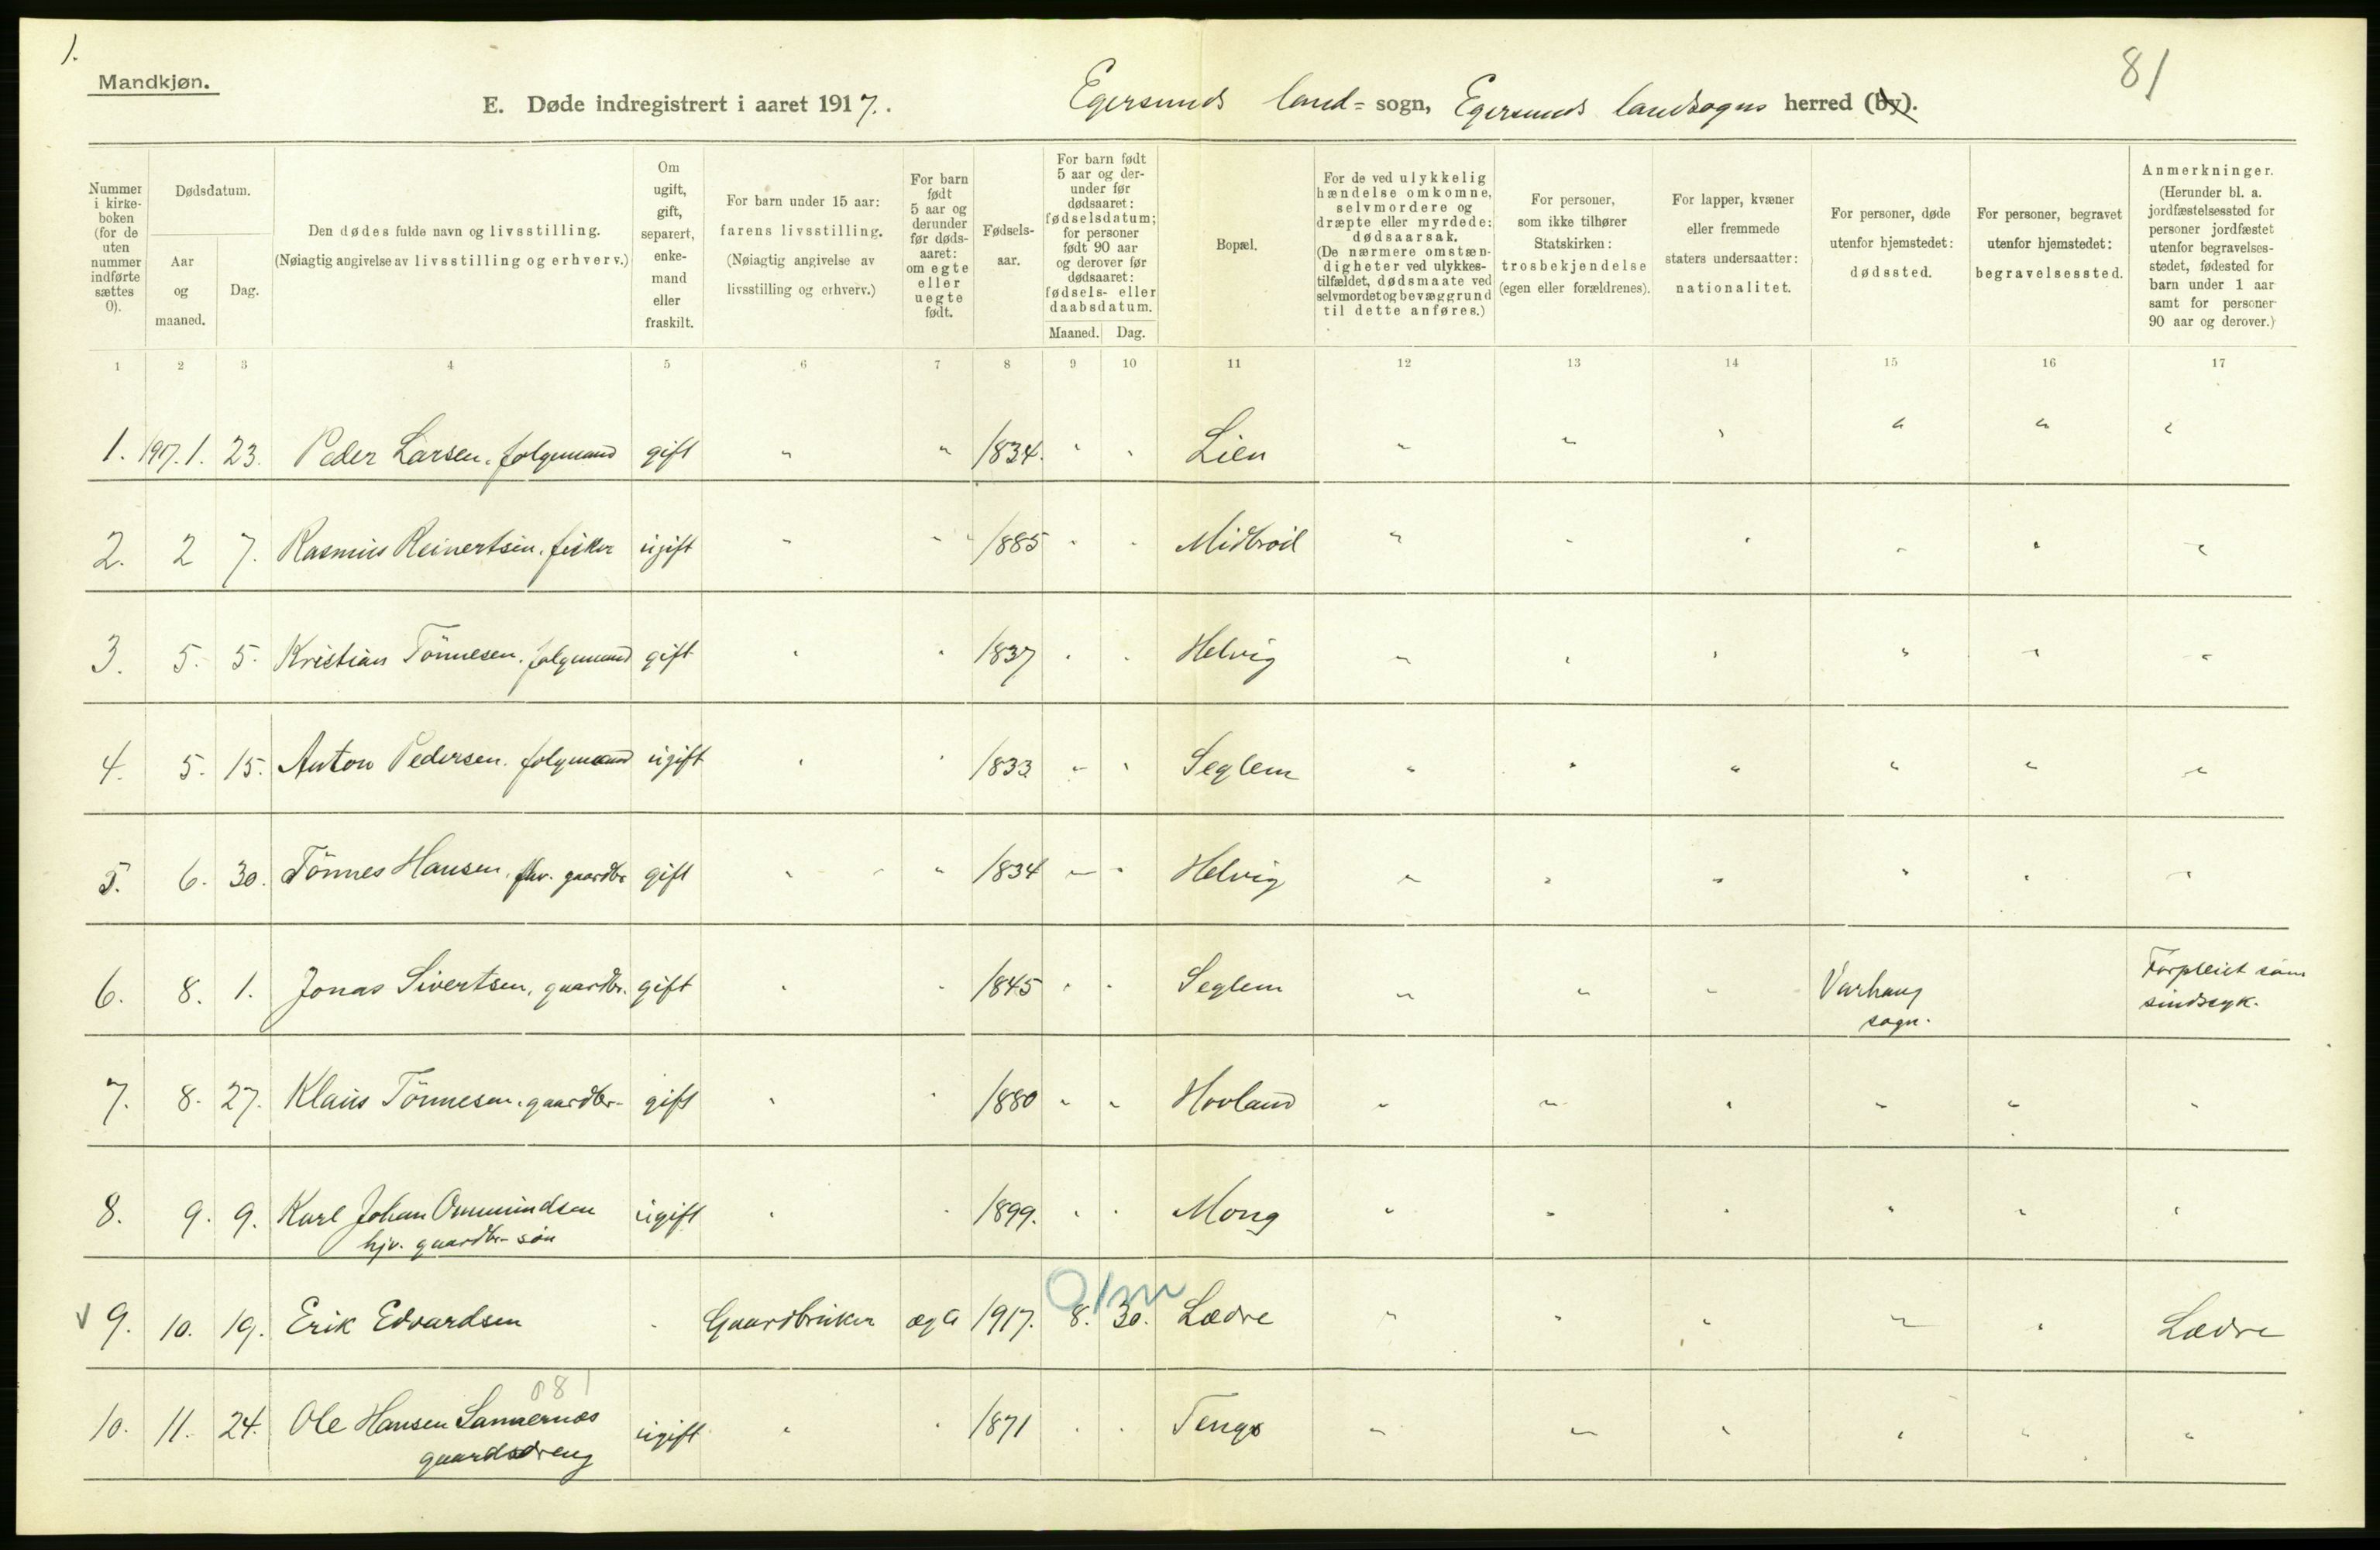 1.
Mandkjøn.
81
E. Døde indregistrert i aaret 1917. Egersunds land= sogn, Egersunds landsogns herred (by).
Nummer i kirke-boken (for de uten nummer indførte sættes 0).
Dødsdatum.
Aar og maaned.
Dag.
Den dødes fulde navn og livsstilling.
(Nøiagtig angivelse av livsstilling og erhverv.)
Om ugift, gift, separert, enke-mand eller fraskilt.
For barn under 15 aar: farens livsstilling. (Nøiagtig angivelse av livsstilling og erhverv.)
For barn født 5 aar og derunder før døds-aaret: om egte eller uegte født.
Fødsels-aar.
For barn født 5 aar og der-under før dødsaaret: fødselsdatum; for personer født 90 aar og derover før dødsaaret: fødsels- eller daabsdatum.
Maaned. Dag.
Bopæl.
For de ved ulykkelig hændelse omkomne, selvmordere og dræpte eller myrdede: dødsaarsak. (De nærmere omstæn-digheter ved ulykkes-tilfældet, dødsmaate ved selvmordet og bevæggrund til dette anføres.)
For personer, som ikke tilhører Statskirken: trosbekjendelse (egen eller forældrenes).
For lapper, kvæner eller fremmede staters undersaatter: nationalitet.
For personer, døde utenfor hjemstedet: dødssted.
For personer, begravet utenfor hjemstedet: begravelsessted.
Anmerkninger. (Herunder bl. a. jordfæstelsessted for personer jordfæstet utenfor begravelses-stedet, fødested for barn under 1 aar samt for personer 90 aar og derover.)
1 2 3 4 5 6 7 8 9 10 11 12 13 14 15 16 17
1. 1917. 1. 23. Peder Larsen. folgemand gift " " 1834. " " Lien " " " " " "
2. 2 7. Rasmus Reinertsen. fisker ugift " " 1885 " " Midbrød " " " " " "
3. 5. 5. Kristian Tönnesen. folgemand gift " " 1837 " " Helvig " " " " " "
4. 5. 15. Anton Pedersen. folgemand ugift " " 1833 " " Seglem " " " " " "
5. 6. 30. Tönnes Hansen, fhv. gaardbr gift " " 1834 " " Helvig " " " " " "
6. 8. 1. Jonas Sivertsen, gaardbr. gift " " 1845 " " Seglem " " " Varhaug Forpleiet som
sogn. sindssyk.
7. 8. 27. Klaus Tönnesen. gaardbr- gift " " 1880 " " Hovland " " " " " "
8. 9. 9. Karl Johan Ommundsen ugift " " 1899. " " Mong " " " " " "
hjv. gaardbr- søn
0 1 m
9. 10. 19. Erik Edvardsen " Gaardbruker ægte 1917. 8. 30. Lædre " " " " " Lædre
081
10. 11. 24. Ole Hansen Lannernes ugift " " 1871 " " Tengs " " " " " "
gaardsdreng